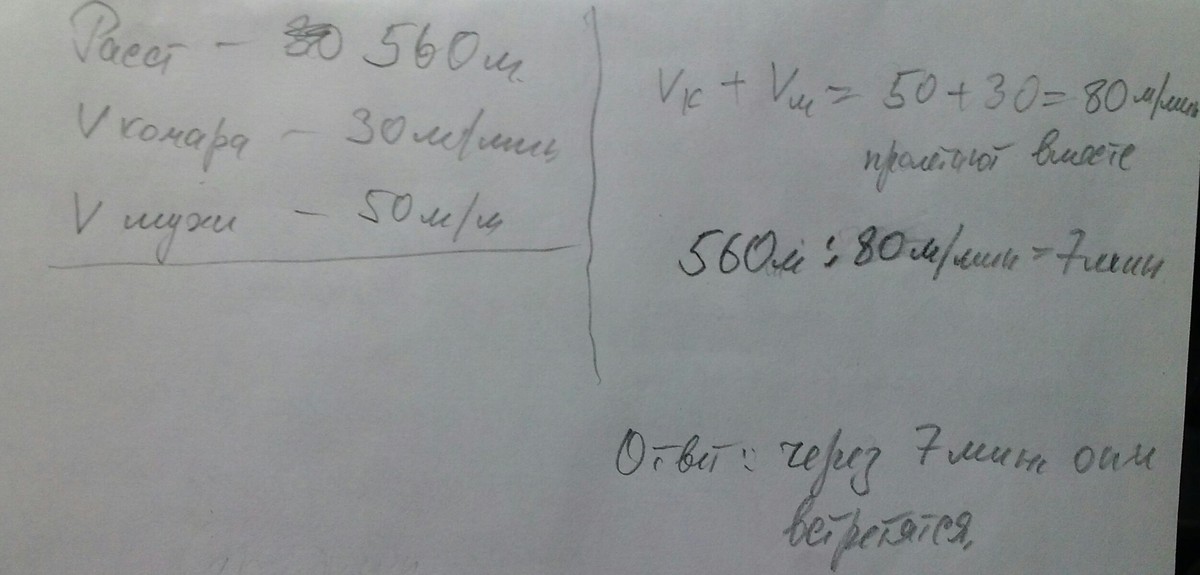 Расст - 560м
V комара - 30м/мин
V мухи - 50м/м
Vк + Vм = 50 + 30 = 80 м/мин
пролетают вместе
560м : 80м/мин = 7мин
Ответ: через 7 мин они
встретятся.